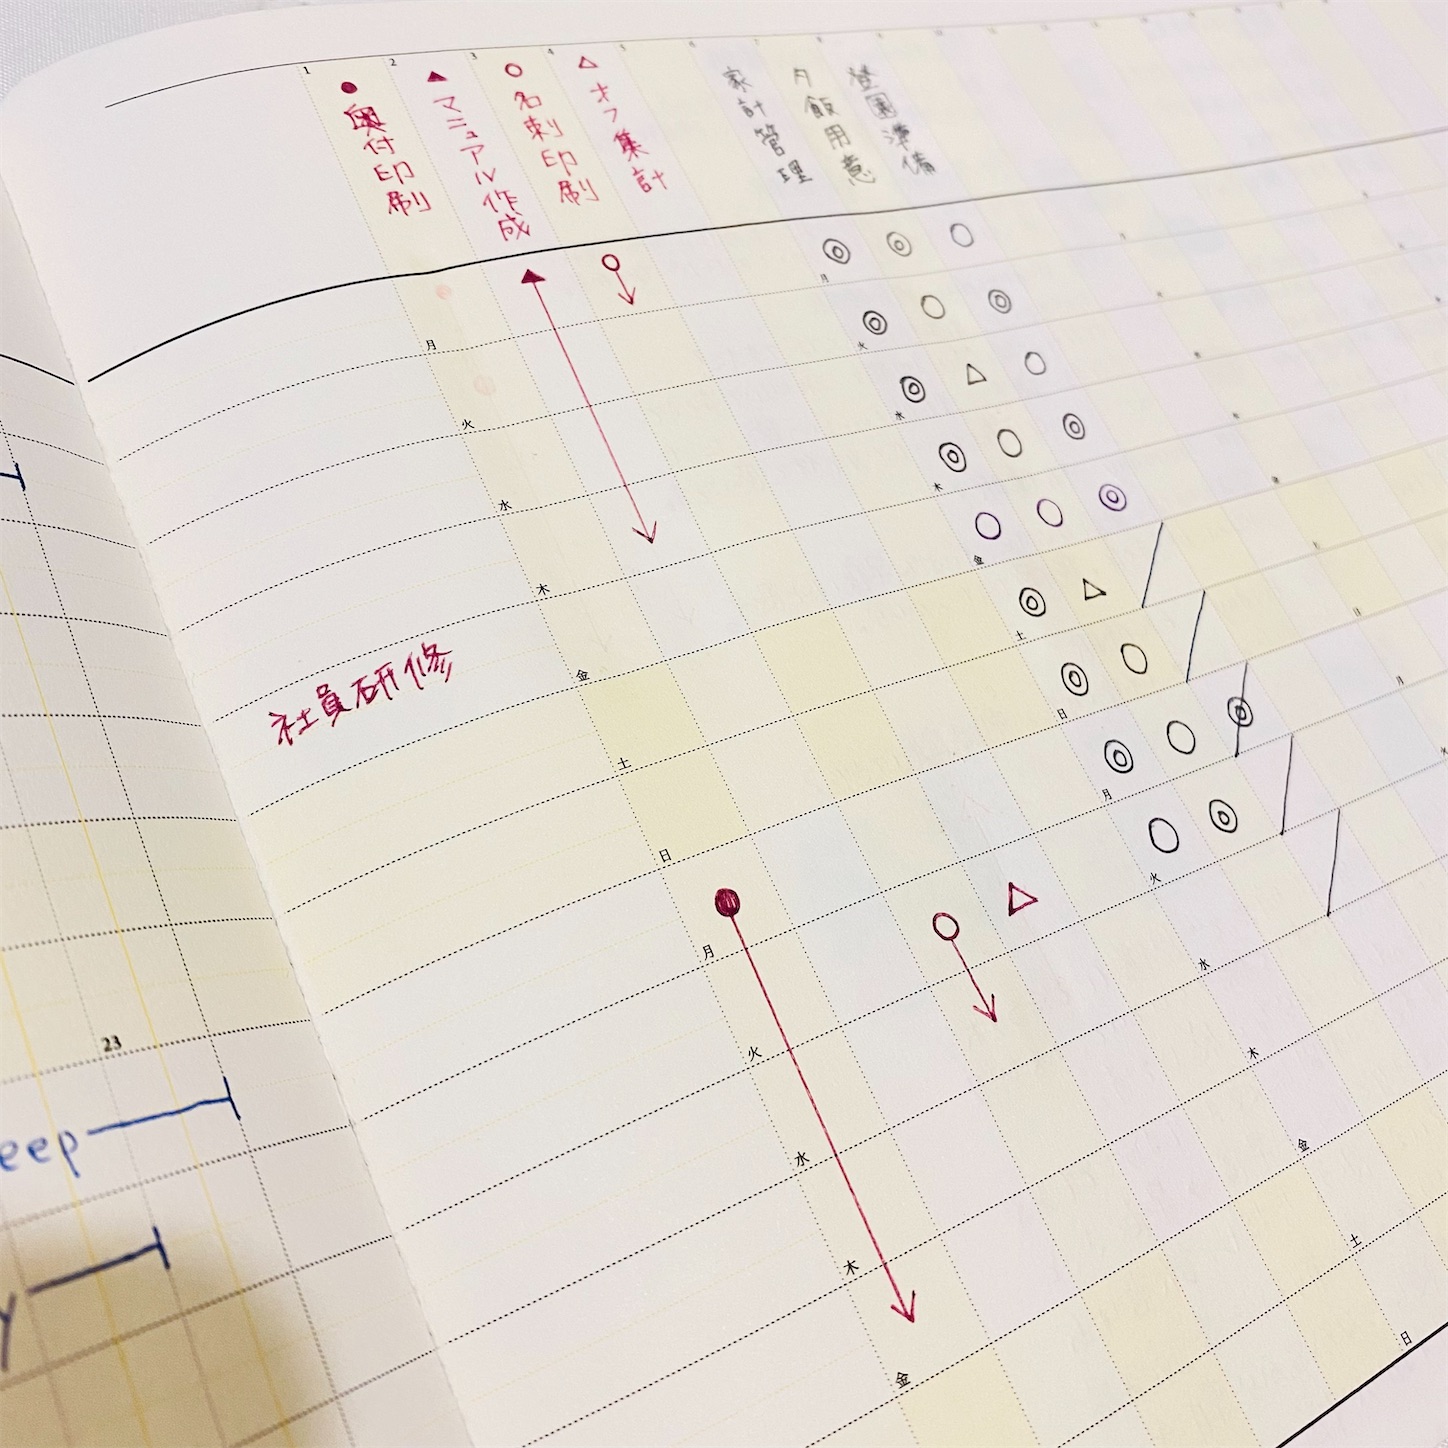 1
2
3
4
5
6
7
8
9
10
● 奥付印刷
▲ マニュアル作成
○ 名刺印刷
△ オフ集計
家計管理
夕飯用意
登園準備
月
火
水
木
金
土
日
月
火
水
木
金
月
火
水
木
金
土
日
月
火
水
木
金
土
日
社員研修
23
eep
y